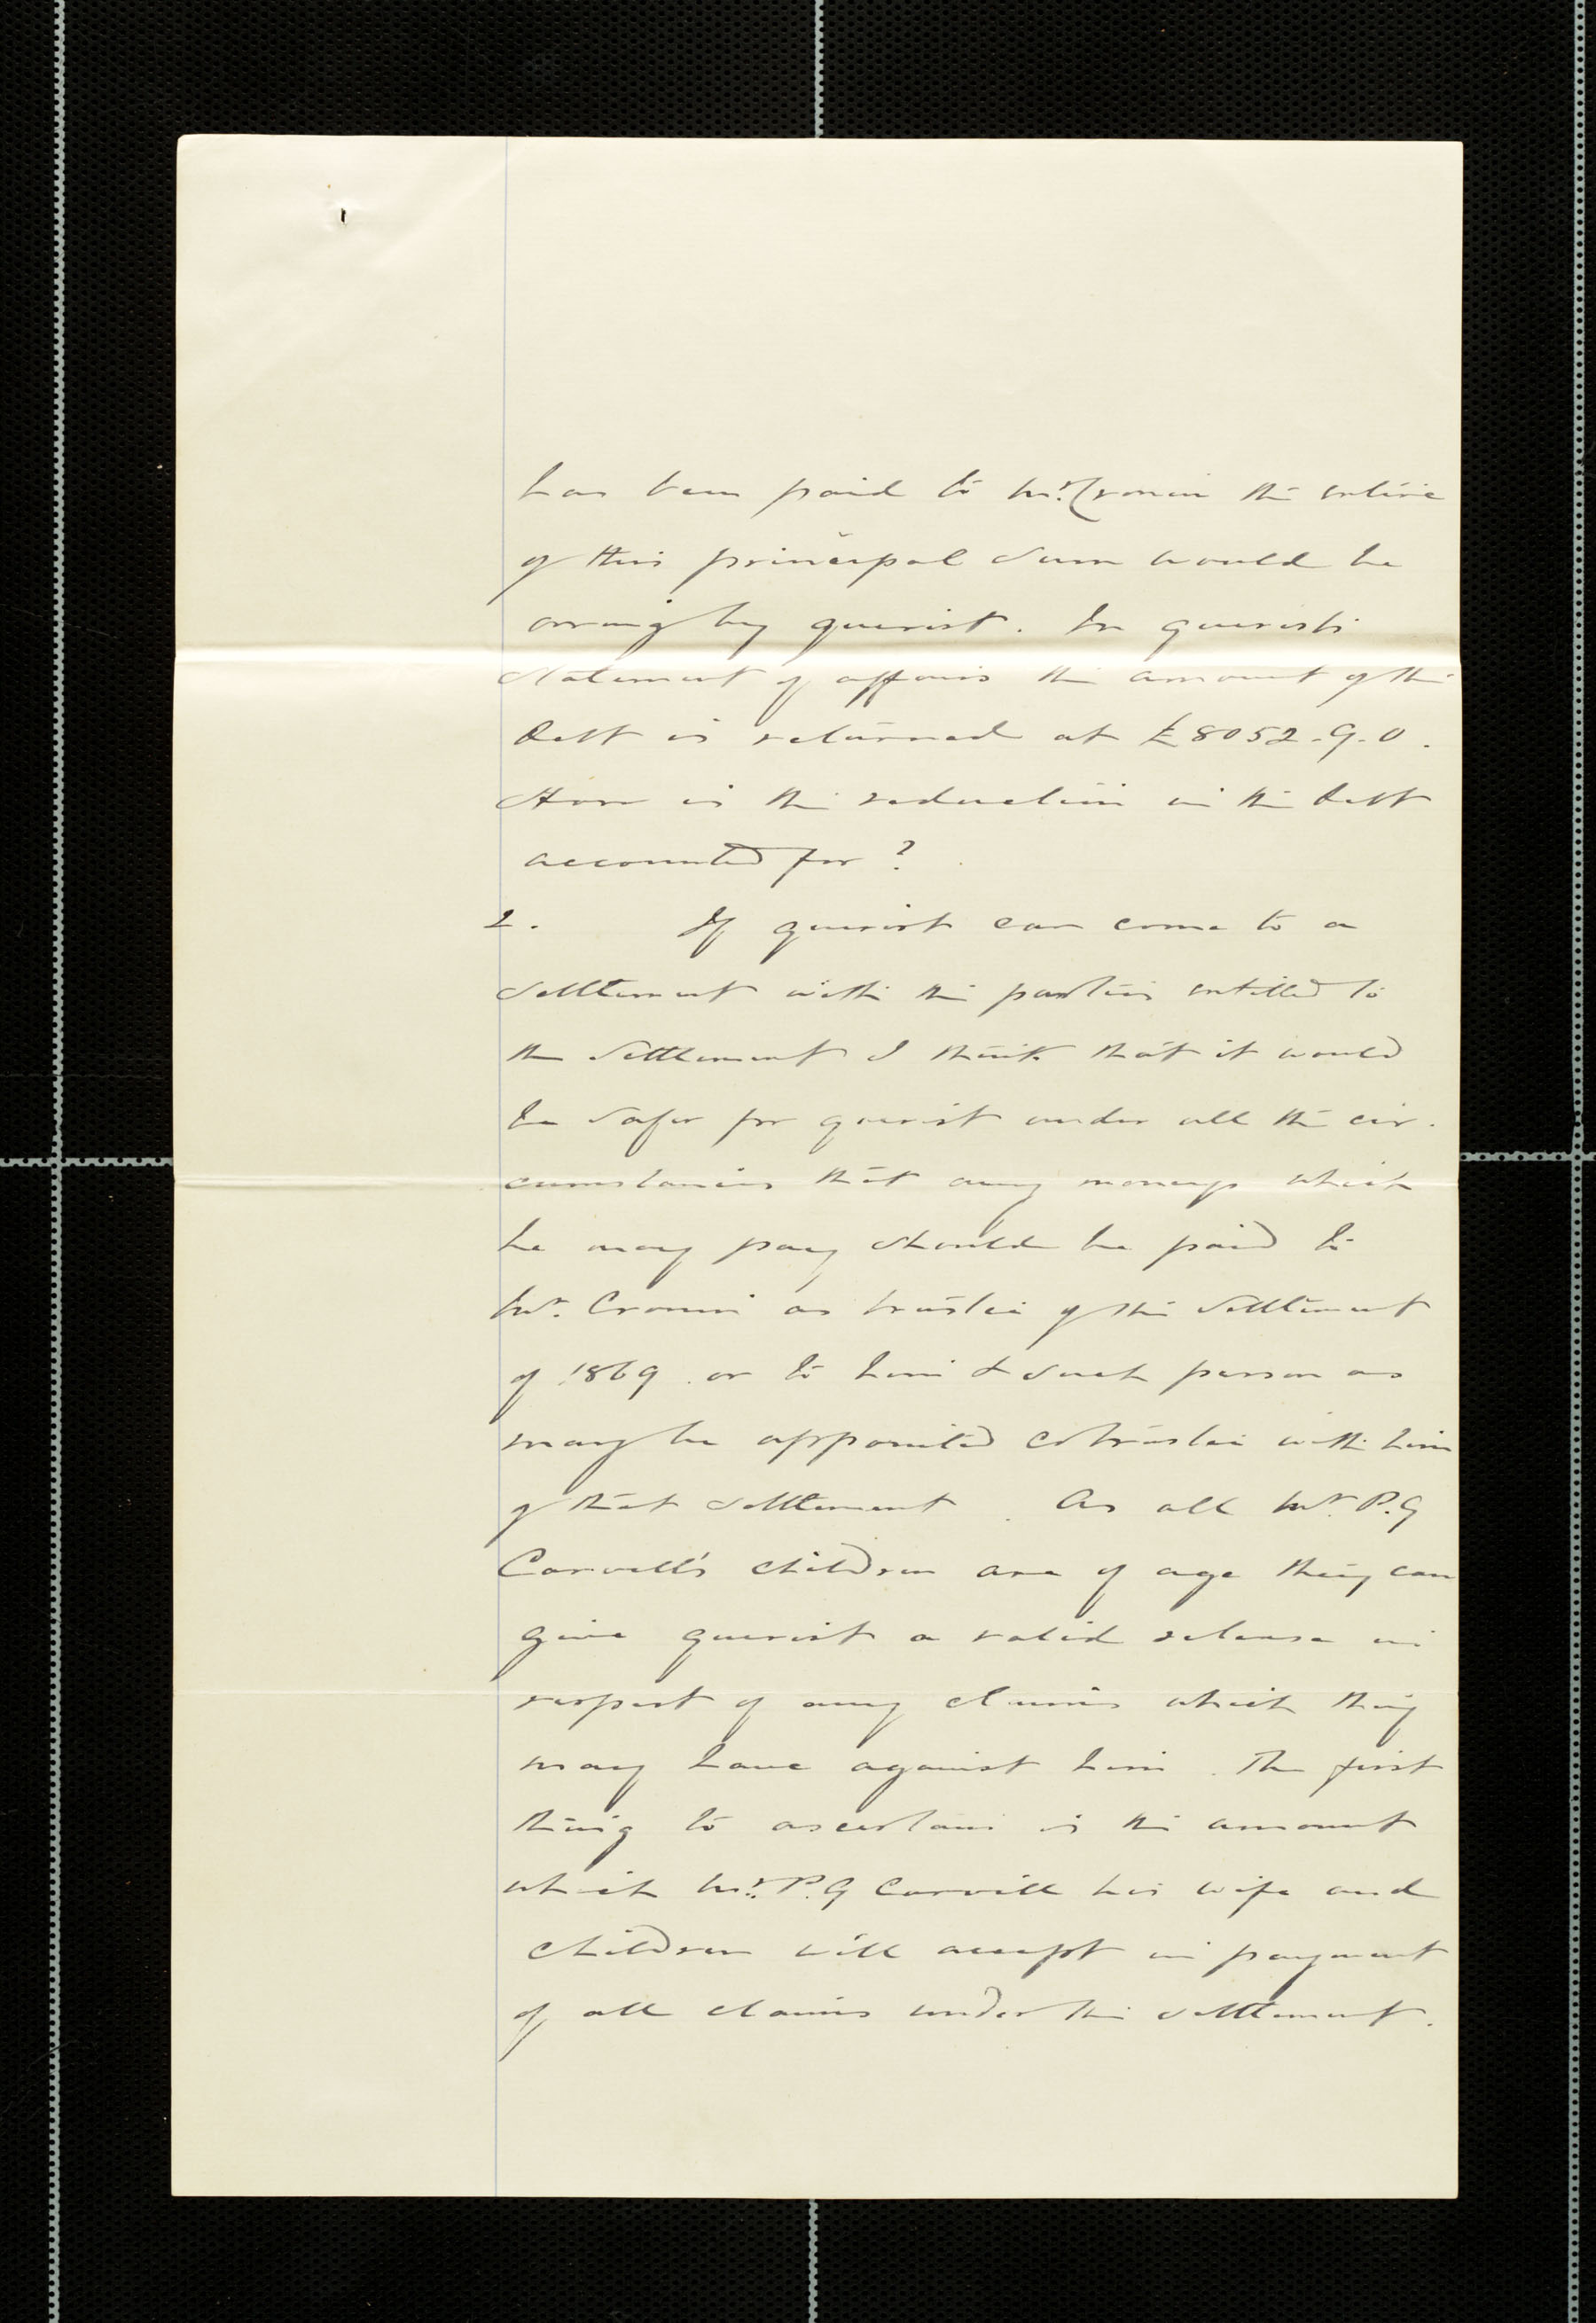 has been paid to Mr. Cronin the entire
of this principal sum would be
owing by querist. In querists
Statement of affairs the amount of this
debt is returned at £8052-9-0.
How is the reduction in the debt
accounted for?
2. If querist can come to a
Settlement with the parties entitled to
the Settlement I think that it would
be safer for querist under all the cir-
cumstances that any moneys which
he may pay should be paid to
Mr. Cronin as trustee of the Settlement
of 1869 or to him & such person as
may be appointed cotrustee with him
of that Settlement. As all Mr. P.G
Carvill's children are of age they can
give querist a valid release in
respect of any claims which they
may have against him. The first
thing to ascertain is the amount
which Mr. P.G Carvill his wife and
children will accept in payment
of all claims under the settlement.